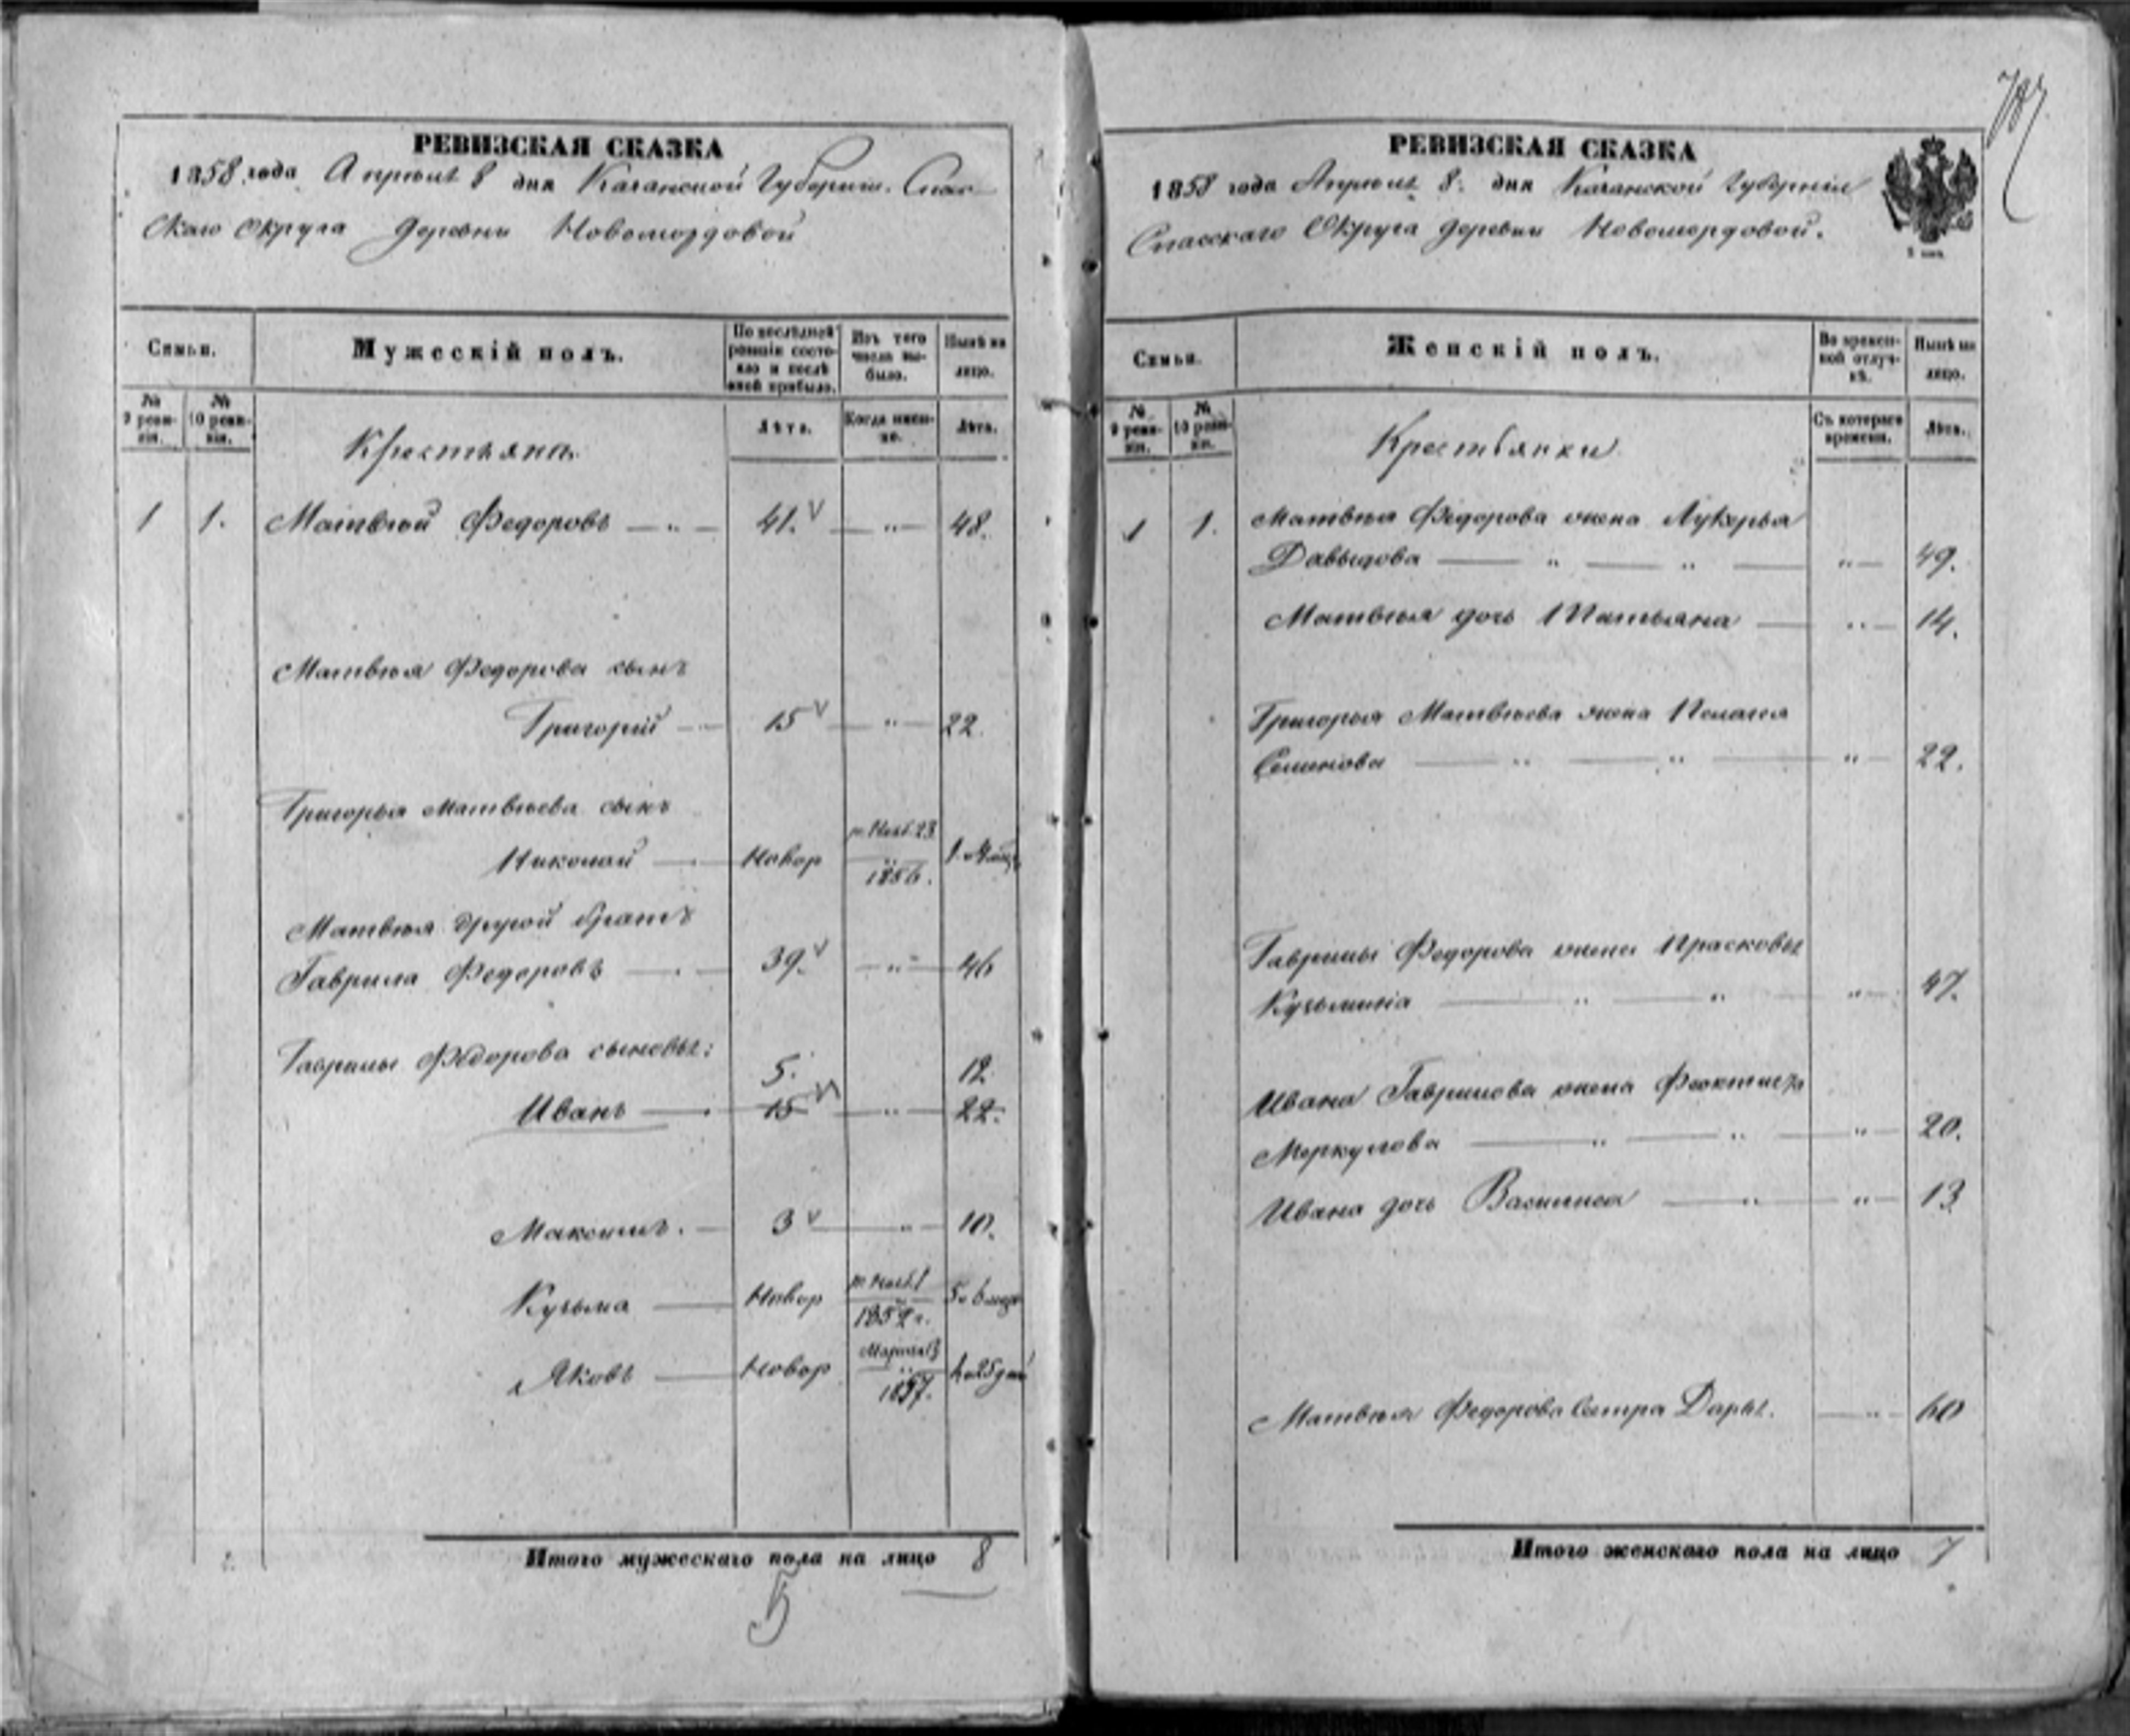 РЕВИЗСКАЯ СКАЗКА
1858 года Апрѣля 8 дня Казанской Губерніи Спас-
скаго Округа Деревни Новомордовой
Семьи.
Мужескій полъ.
По послѣдней ревизіи состояло и послѣ оной прибыло.
Изъ того числа выбыло.
Нынѣ на лицо.
№ 9 ревизіи.
№ 10 ревизіи.
Лѣта.
Когда именно.
Лѣта.
Крестьяна
1 1. Матвѣй Федоровъ — „ — 41. — „ — 48.
Матвѣя Федорова сынъ
Григорій — 15 — „ — 22.
Григорья Матвѣева сынъ
Николай — Новор 23 1856. 1.
Матвѣя другой братъ
Гаврила Федоровъ — 39. — „ — 46
Гаврилы Федорова сыновья:
5. 12
Иванъ — 15 — „ — 22.
Максимъ. — 3 — „ — 10.
Кузьма — Новор 1852 г. 5 и 6
Яковъ — Новор Марта 1857.
Итого мужескаго пола на лицо 8
5
РЕВИЗСКАЯ СКАЗКА
1858 года Апрѣля 8. дня Казанской Губерніи
Спасскаго Округа Деревни Новомордовой.
Семьи.
Женскій полъ.
Во временной отлучкѣ.
Нынѣ на лицо.
№ 9 ревизіи.
№ 10 ревизіи.
Съ котораго времени.
Лѣта.
Крестьянки
1 1. Матвѣя Федорова жена Лукерья
Давыдова — „ — „ — „ — 49.
Матвѣя дочь Татьяна — „ — 14.
Григорья Матвѣева жена Пелагея
Семенова — „ — „ — „ — 22.
Гаврилы Федорова жена Прасковья
Кузьмина — „ — „ — „ — 47.
Ивана Гаврилова жена Феоктиста
Меркулова — „ — „ — „ — 20.
Ивана дочь Василиса — „ — „ — 13
Матвѣя Федорова сестра Дарья. — „ — 60
Итого женскаго пола на лицо 7